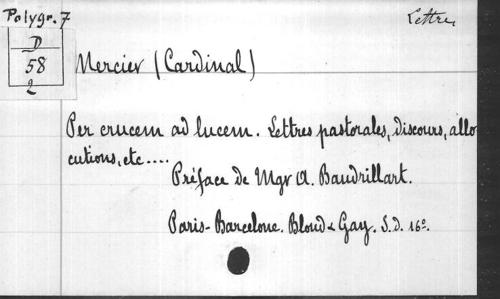 Polygr. 7
Lettre
D
58
2
Mercier (Cardinal)
Per crucem ad lucem. Lettres pastorales, discours, allo
cutions, etc....
Préface de Mgr A. Baudrillart.
Paris-Barcelone. Bloud & Gay. S.d. 16º.